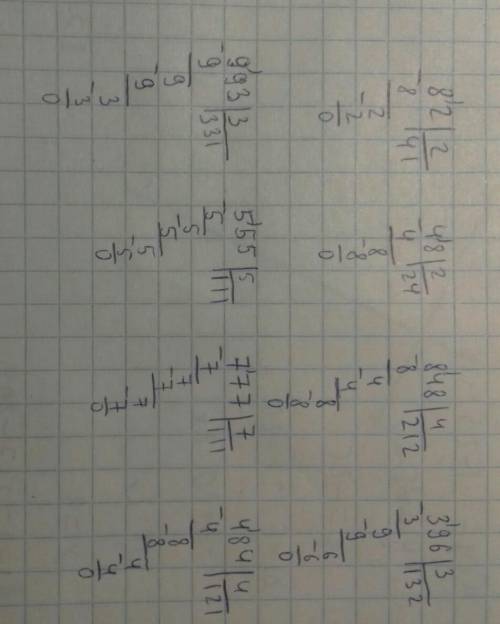 82|2
-8|41
2
-2
0
48|2
-4|24
8
-8
0
848|4
-8|212
4
-4
8
-8
0
396|3
-3|132
9
-9
6
-6
0
993|3
-9|331
9
-9
3
-3
0
555|5
-5|111
5
-5
5
-5
0
777|7
-7|111
7
-7
7
-7
0
484|4
-4|121
8
-8
4
-4
0